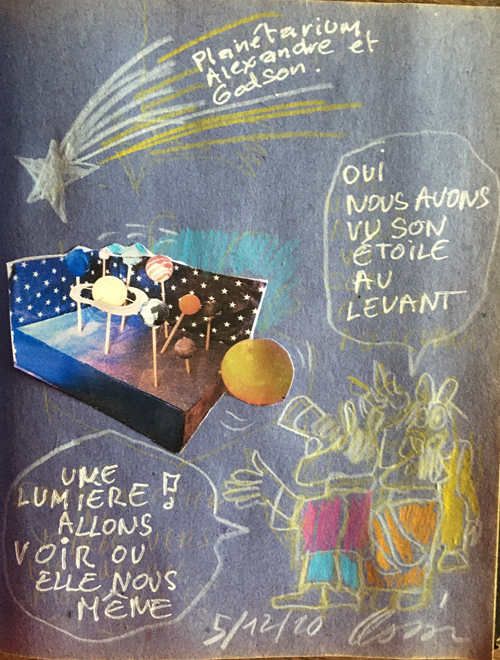 Planêtarium
Alexandre et
Godson.
OUI
NOUS AVONS
VU SON
ÉTOILE
AU
LEVANT
UNE
LUMIERE !
ALLONS
VOIR OU
ELLE NOUS
MÊNE
5/12/20